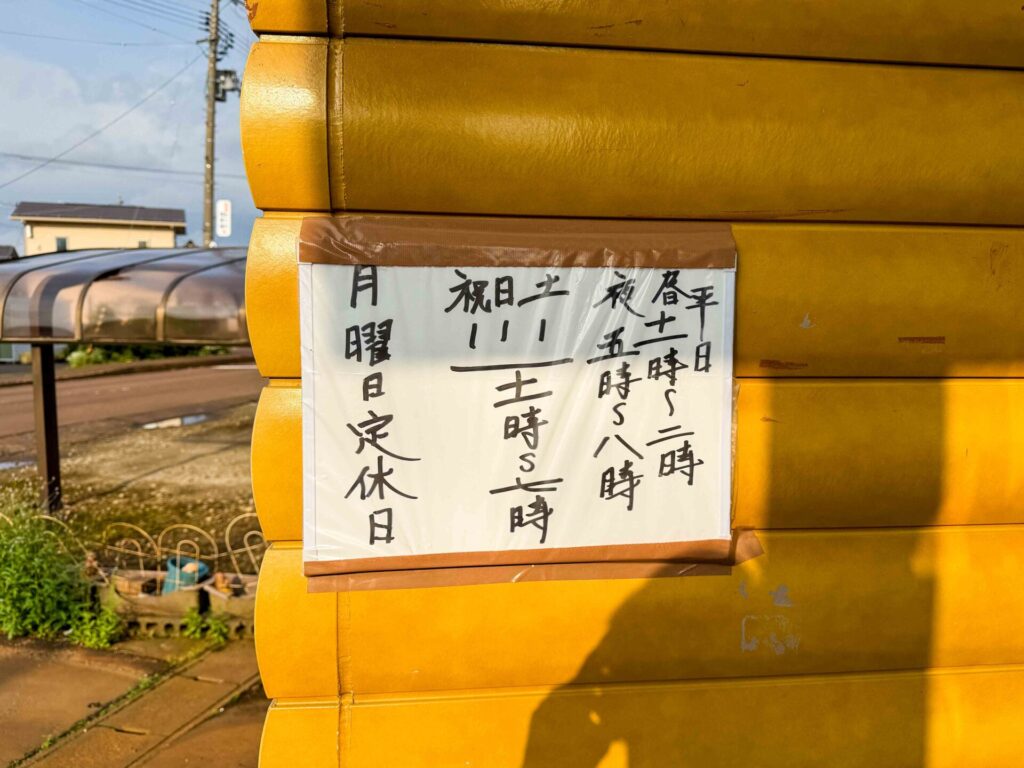 平日
昼十一時〜二時
夜五時〜八時
土日祝
十一時〜七時
月曜日定休日